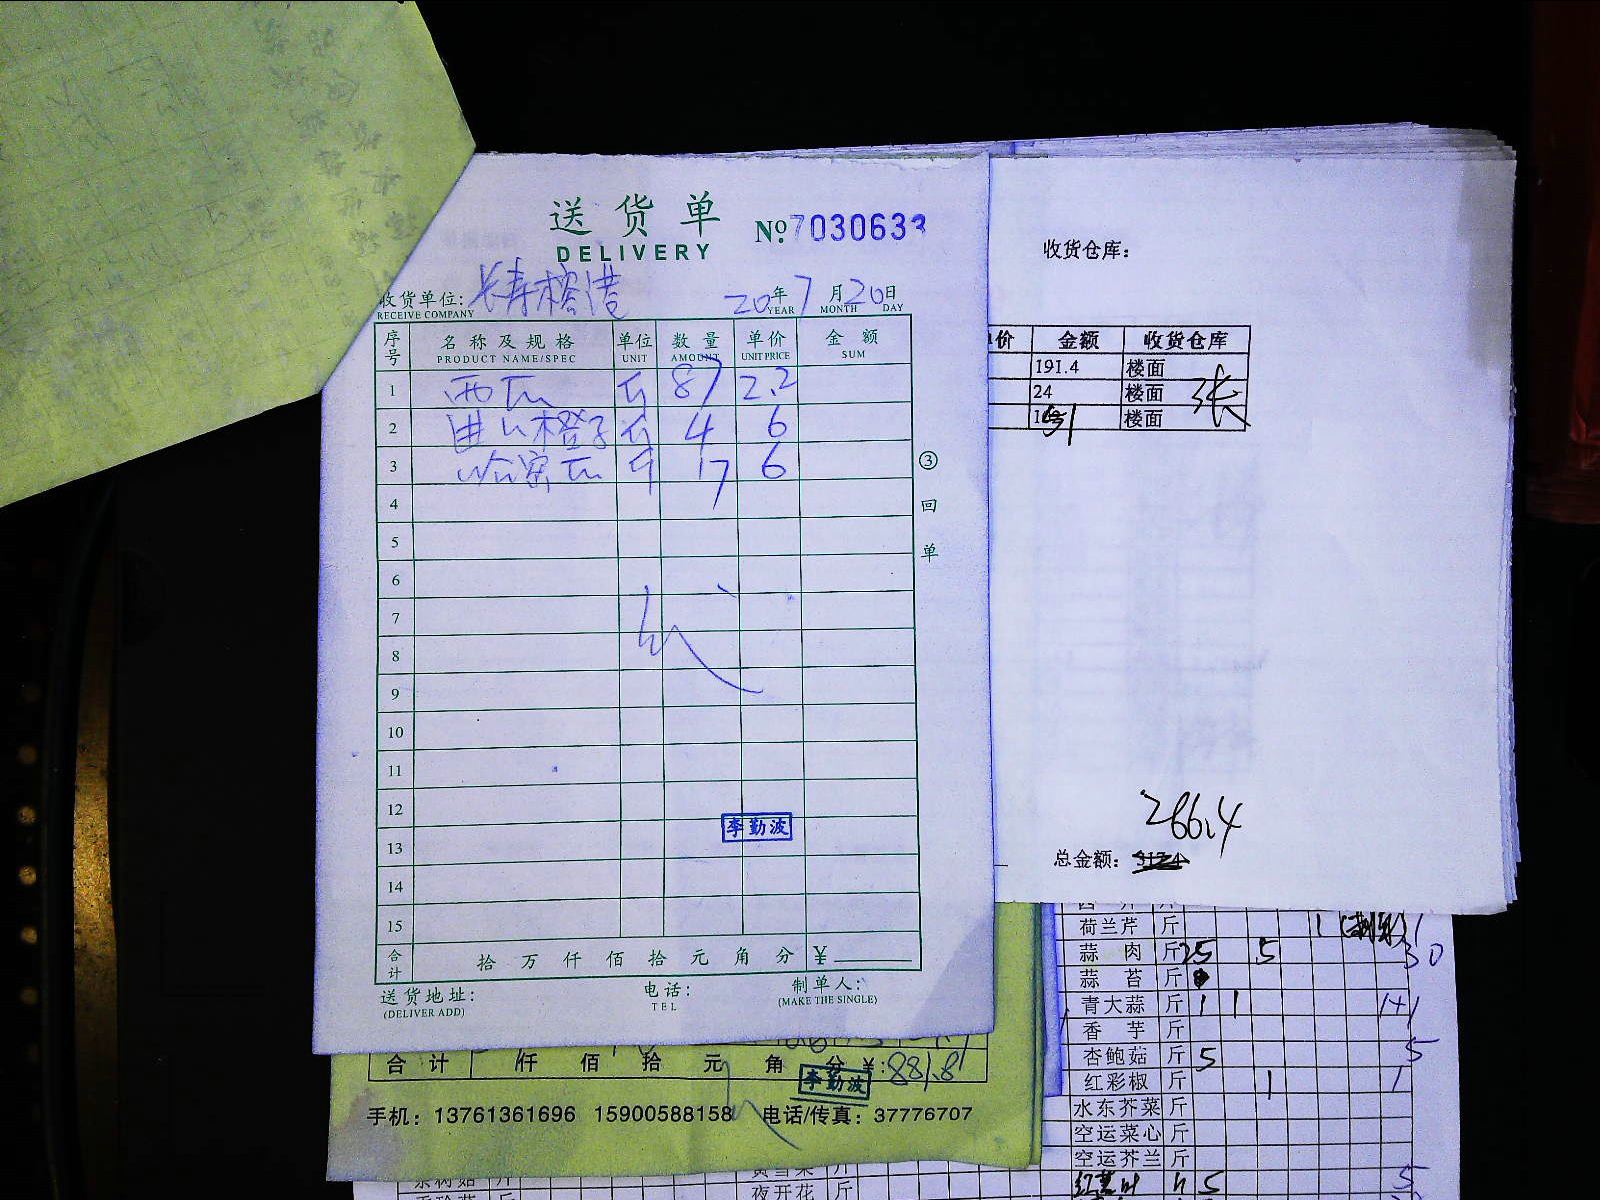 送货单
DELIVERY
No.7030633
收货单位:
RECEIVE COMPANY
20年 7月 20日
YEAR MONTH DAY
序号 名称及规格 单位 数量 单价 金额
PRODUCT NAME/SPEC UNIT AMOUNT UNIT PRICE SUM
1 西瓜 斤 87 2.2
2 进口橙子 斤 4 6
3 哈密瓜 斤 17 6
4
5
6
7
8
9
10
11
12
13
14
15
李勤波
合计 拾万仟佰拾元角分 ¥
送货地址:
(DELIVER ADD)
电话:
TEL
制单人:
(MAKE THE SINGLE)
③回单
收货仓库:
价 金额 收货仓库
191.4 楼面
24 楼面
楼面
张
266.4
总金额:
合计 仟佰拾元角分 ¥:881.8
李勤波
手机: 13761361696 15900588158 电话/传真: 37776707
荷兰芹 斤 1
蒜肉 斤 25 5 30
蒜苔 斤
青大蒜 斤 1 1 1+1
香芋 斤
杏鲍菇 斤 5 5
红彩椒 斤 1 1
水东芥菜 斤
空运菜心 斤
空运芥兰 斤
5 5
夜开花 斤